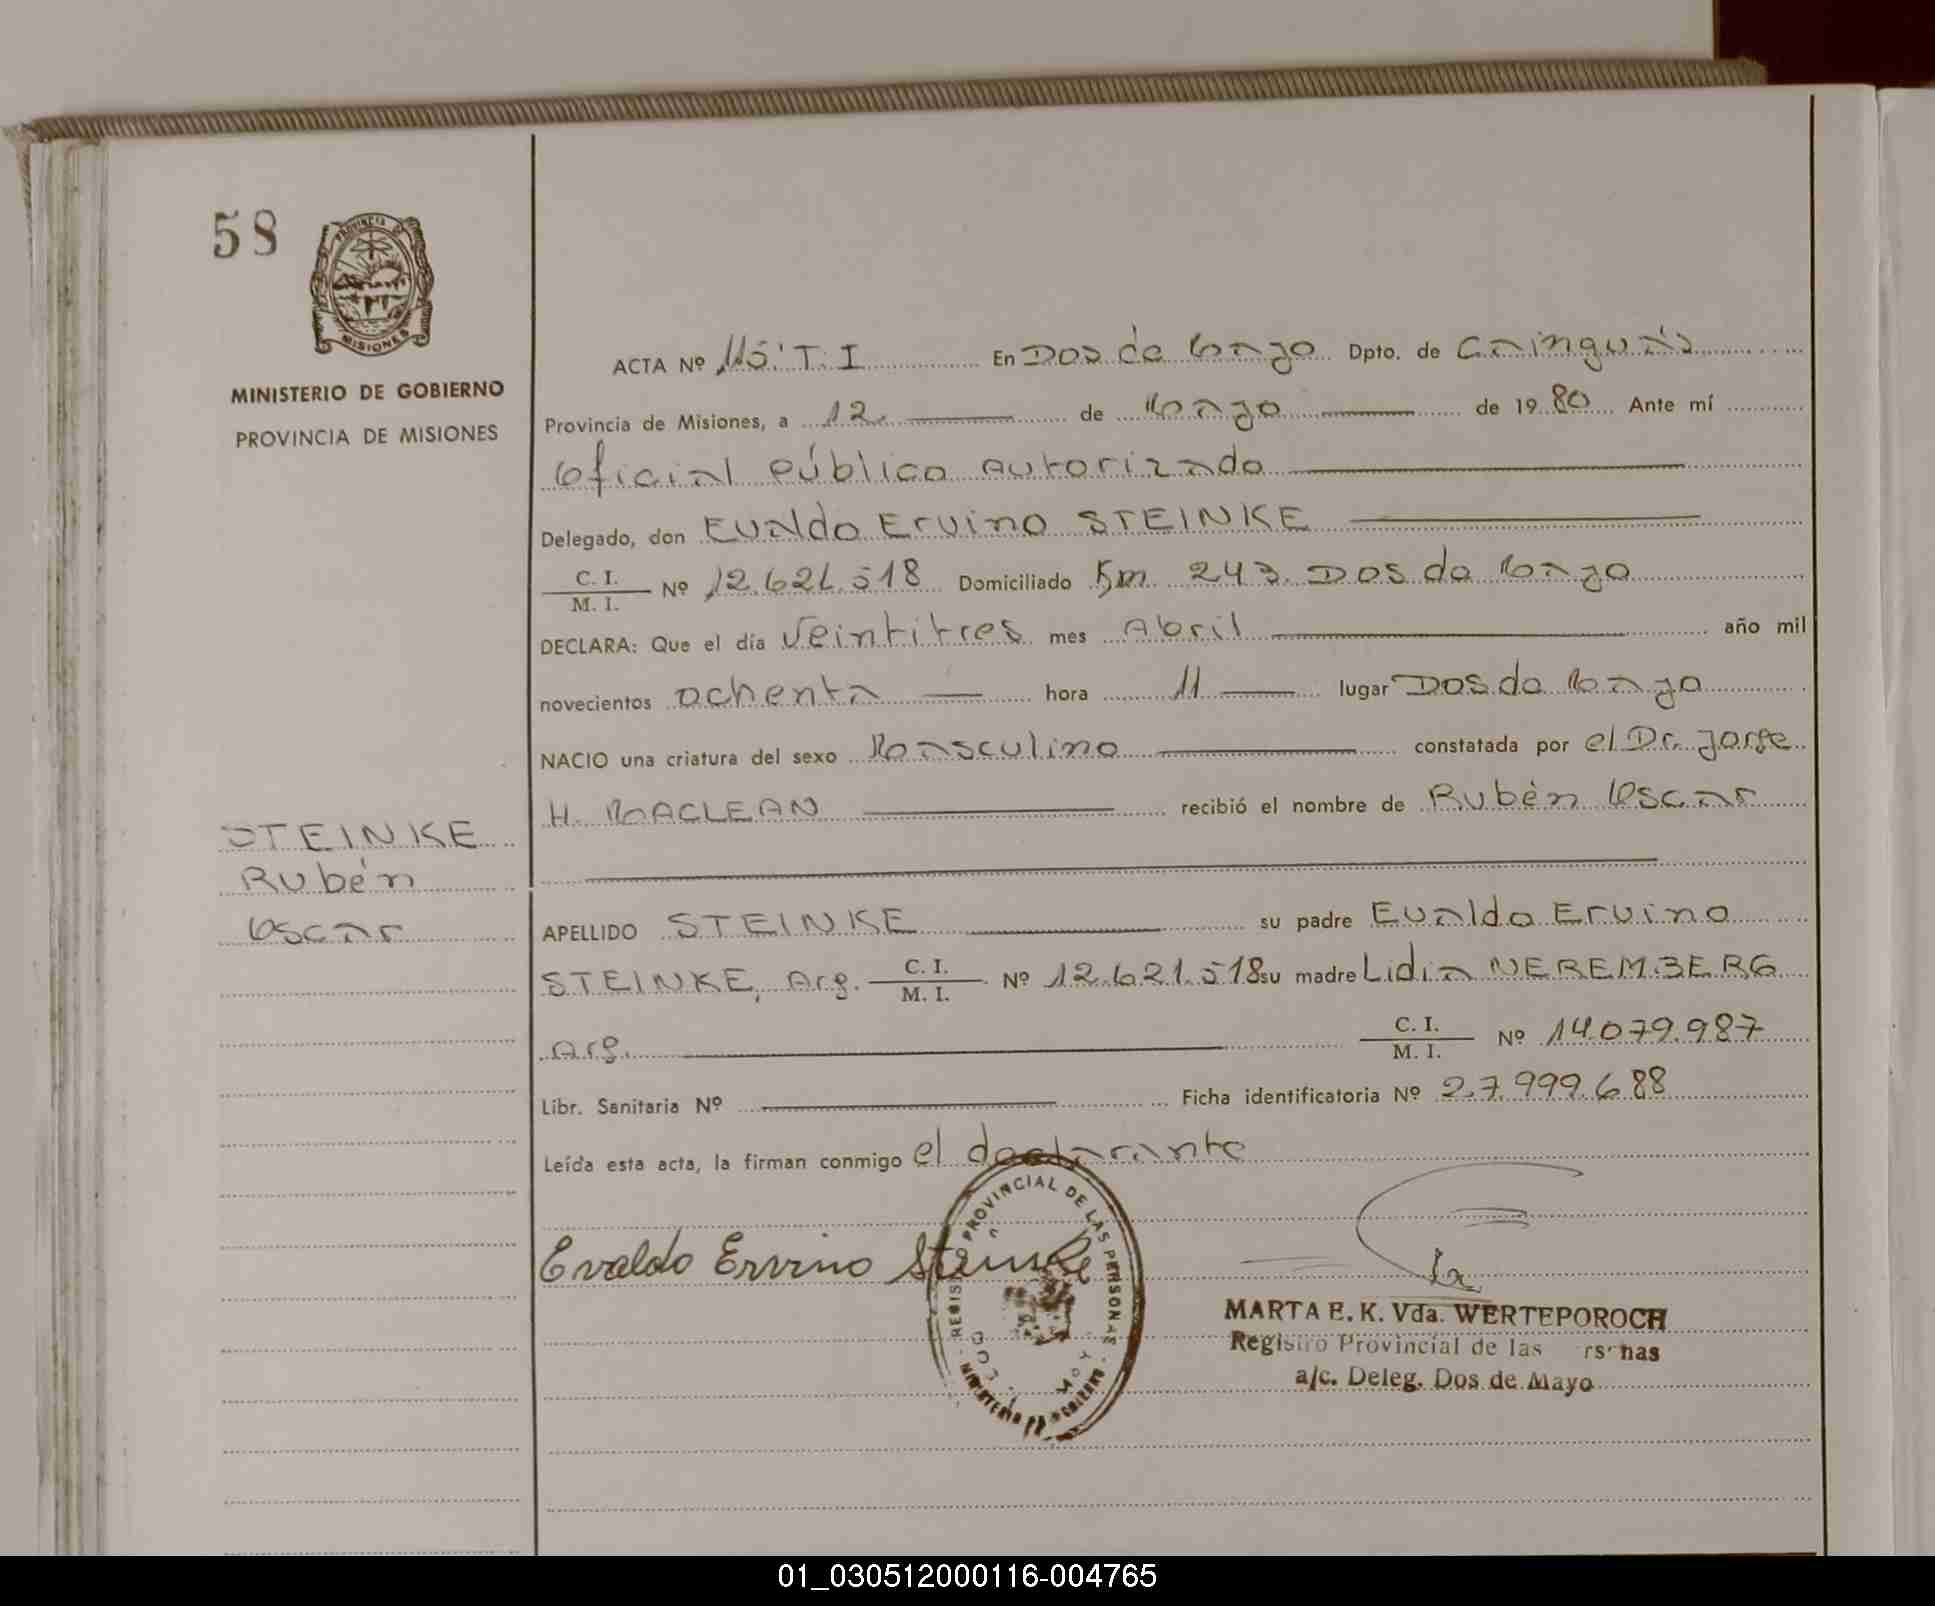 58
PROVINCIA DE
MISIONES
MINISTERIO DE GOBIERNO
PROVINCIA DE MISIONES
ACTA Nº 115 T. I En Dos de Mayo Dpto. de Cainguás
Provincia de Misiones, a 12 de Mayo de 1980 Ante mí
Oficial Público Autorizado
Delegado, don Evaldo Ervino STEINKE
C. I.
M. I. Nº 12.621.518 Domiciliado Km 243 Dos de Mayo
DECLARA: Que el día Veintitres mes Abril año mil
novecientos ochenta hora 11 lugar Dos de Mayo
NACIO una criatura del sexo Masculino constatada por el Dr. Jorge
H. MACLEAN recibió el nombre de Rubén Oscar
STEINKE
Rubén
Oscar
APELLIDO STEINKE su padre Evaldo Ervino
STEINKE, Arg. C. I.
M. I. Nº 12.621.518 su madre Lidia NEREMBERG
Arg. C. I.
M. I. Nº 14.079.987
Libr. Sanitaria Nº Ficha identificatoria Nº 27.999.688
Leída esta acta, la firman conmigo el declarante
Evaldo Ervino Steinke
PROVINCIAL DE LAS PERSONAS
MARTA E. K. Vda. WERTEPOROCH
Registro Provincial de las rs nas
a/c. Deleg. Dos de Mayo
01_030512000116-004765